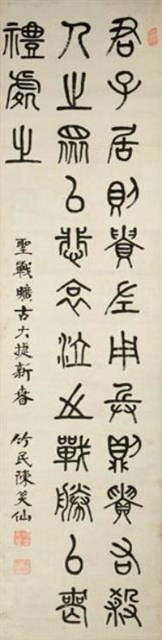 君子居則貴左用兵則貴右殺
人之眾以悲哀泣之戰勝以喪
禮處之
聖戰曠古大捷新春
竹民陳笑仙